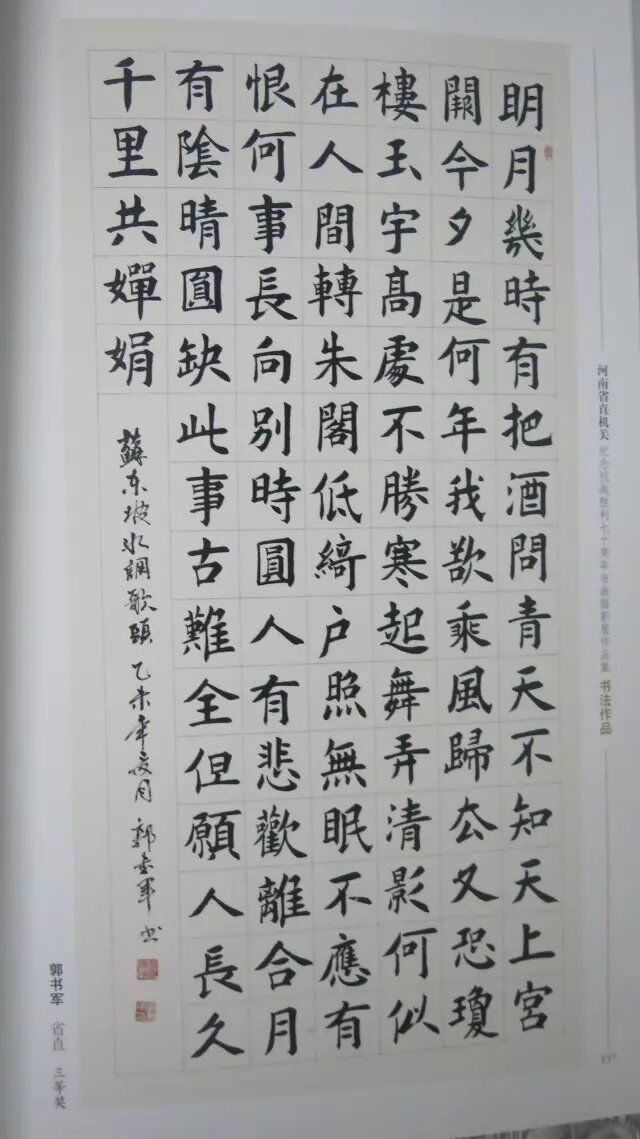 河南省直机关 纪念抗战胜利七十周年书画摄影展作品集 书法作品
明月幾時有把酒問青天不知天上宮
闕今夕是何年我欲乘風歸去又恐瓊
樓玉宇高處不勝寒起舞弄清影何似
在人間轉朱閣低綺户照無眠不應有
恨何事長向别時圓人有悲歡離合月
有陰晴圓缺此事古難全但願人長久
千里共嬋娟
蘇东坡水調歌頭 乙未年夏月 郭書軍 书
郭书军 省直 三等奖
137